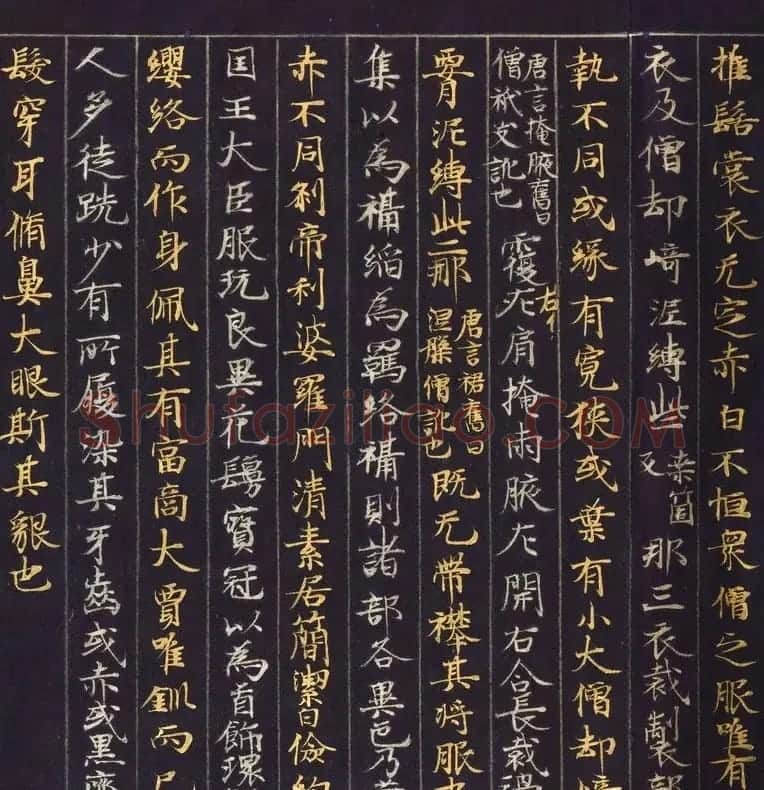 推髻裳衣无定赤白不恒衆僧之服唯有
衣及僧却﨑泥縛些桒箇反那三衣裁製部
執不同或緣有寬狹或葉有小大僧却﨑
唐言掩腋舊曰僧祇支訛也覆左肩掩兩腋左開右合長裁過
腰泥縛些那唐言裙舊曰涅槃僧訛也既无帶襻其將服也
集以為襵縚為羈絡襵則諸部各異色乃黃
赤不同刹帝利婆羅門清素居簡潔白儉約
囯王大臣服玩良異花鬘寶冠以為首飾環
纓絡而作身佩其有富商大賈唯釧而已
人多徒跣少有所履染其牙齒或赤或黑齊
髮穿耳脩鼻大眼斯其貌也
Shufaziliao.COM